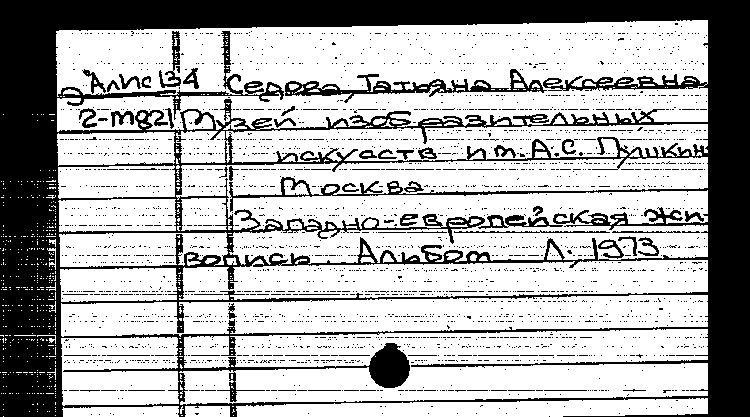 Алис134 Седова, Татьяна Алексеевна
2-m821 Музей изобразительных
искусств им. А.С. Пушкин
Москва
Западно-европейская жи-
вопись Альбом Л., 1973.